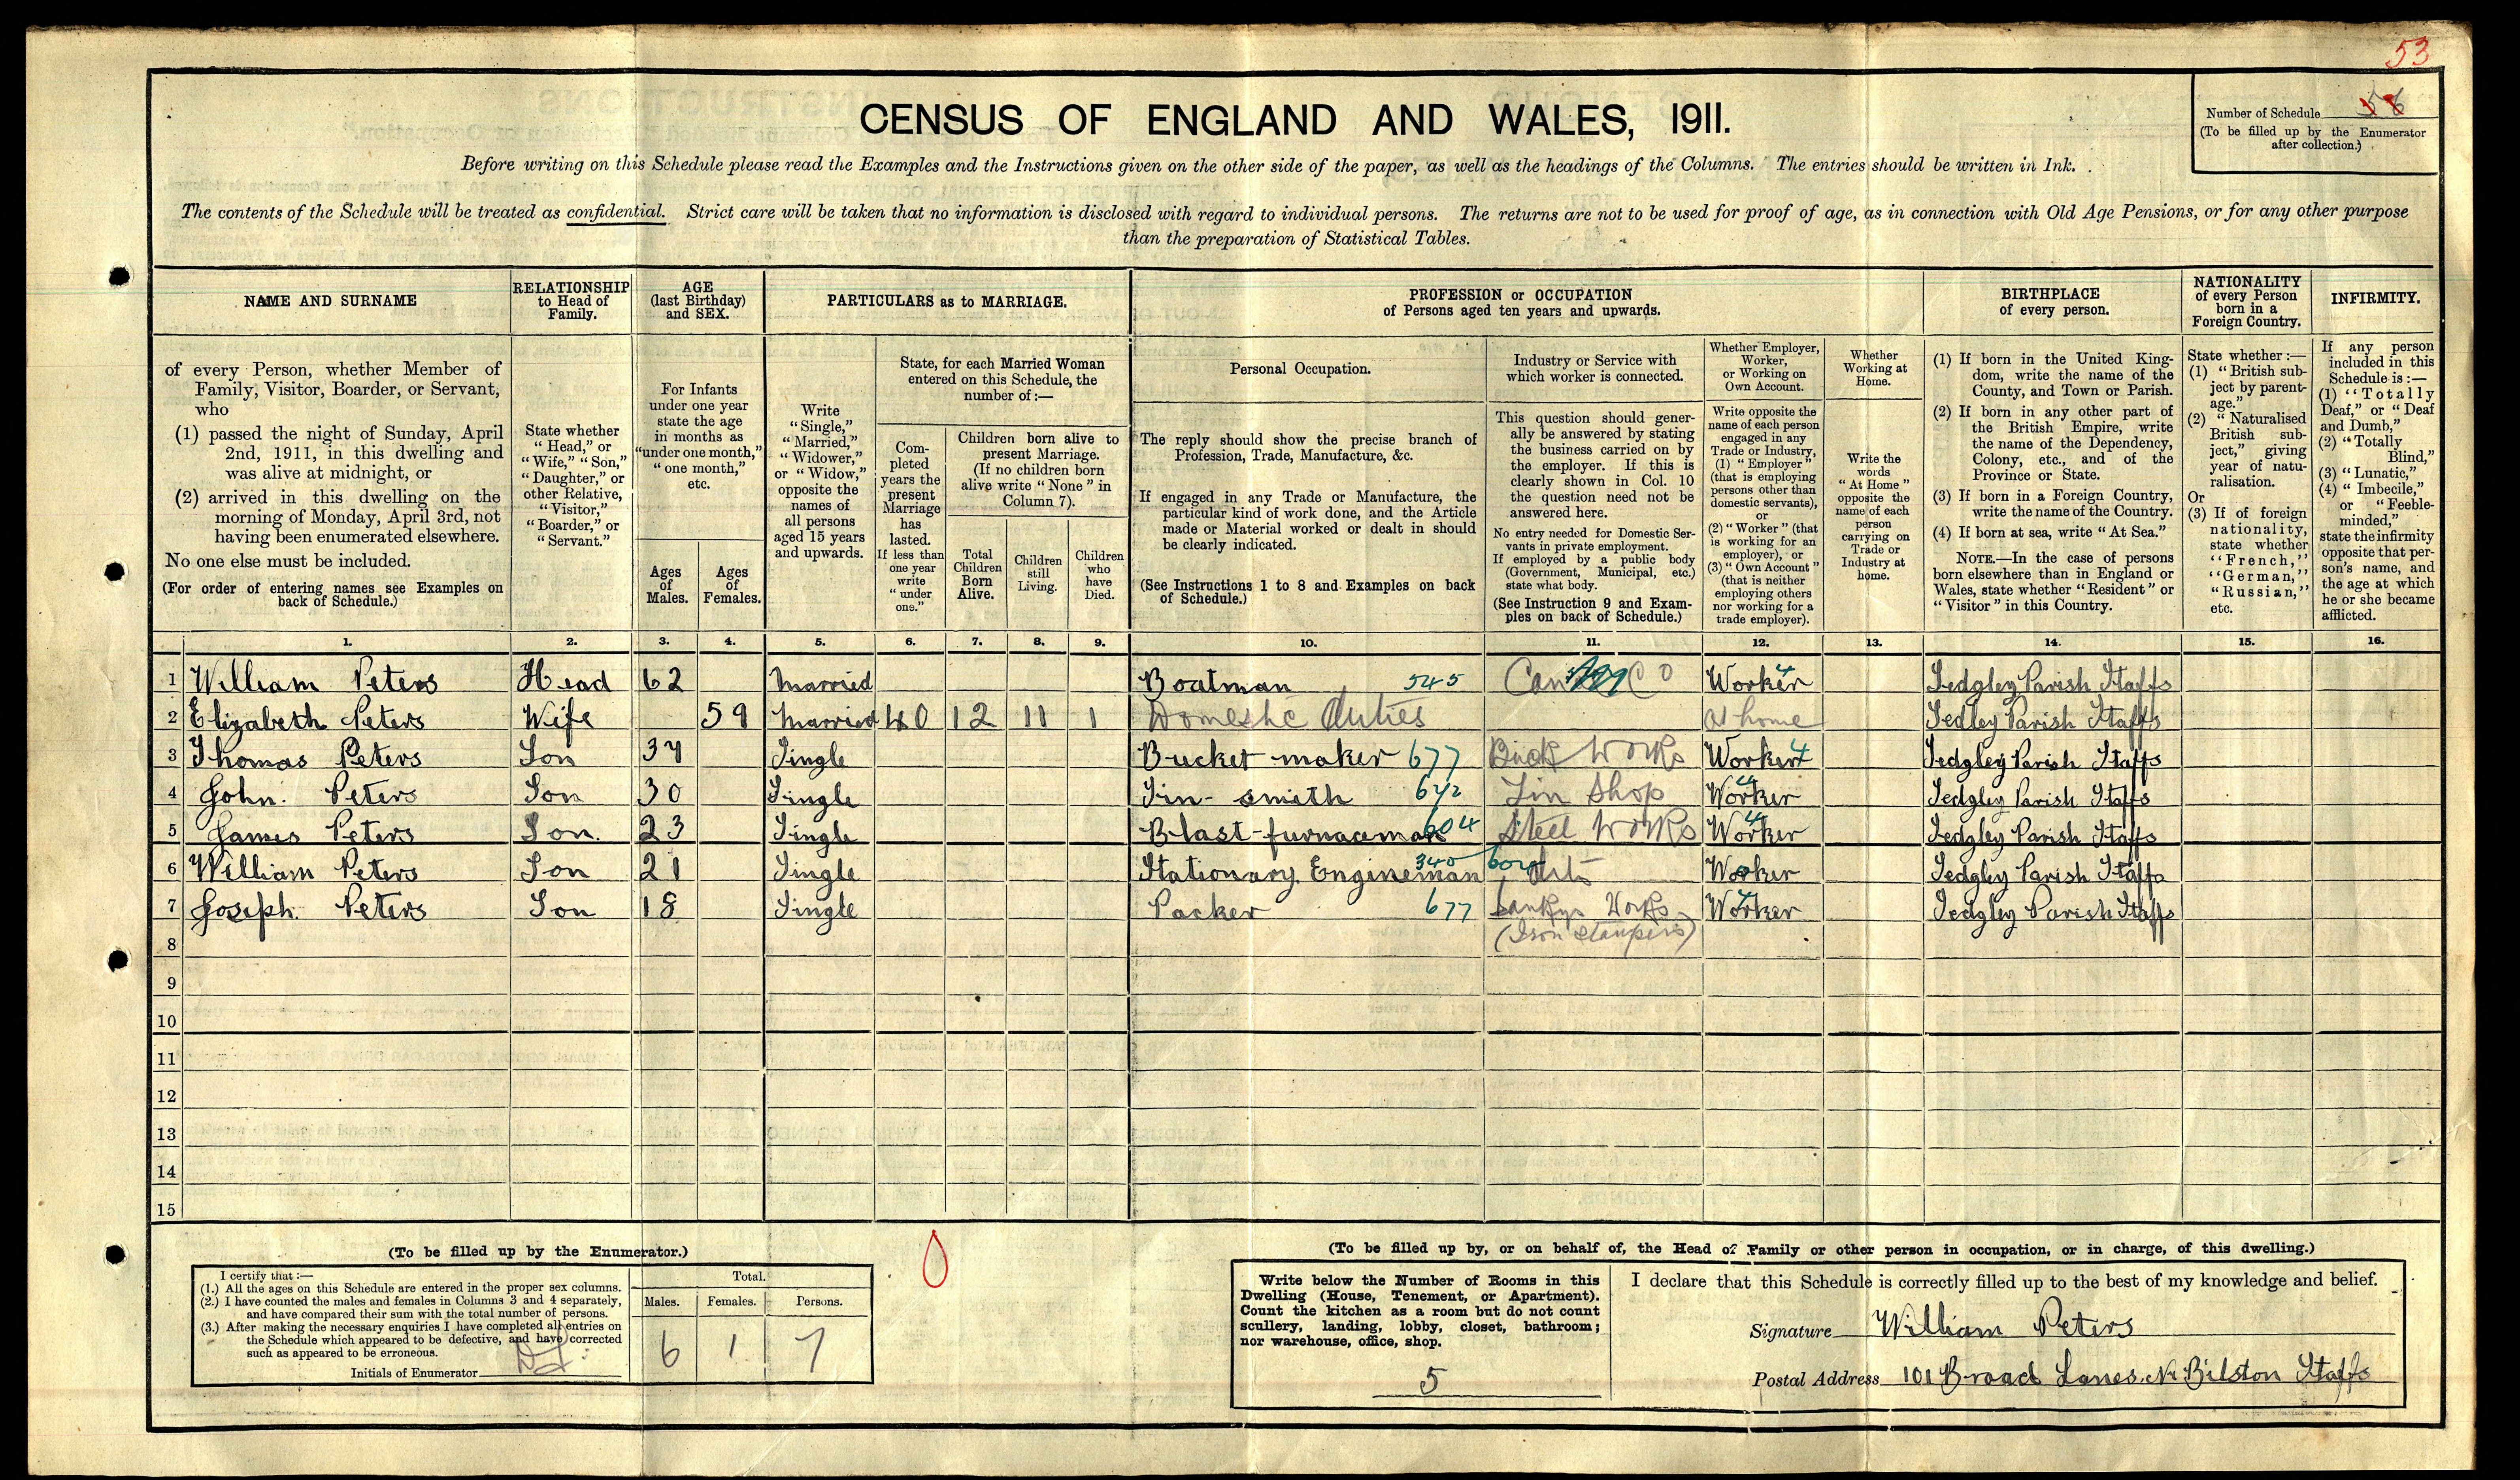 53
CENSUS OF ENGLAND AND WALES, 1911.
Number of Schedule
(To be filled up by the Enumerator
after collection.)
Before writing on this Schedule please read the Examples and the Instructions given on the other side of the paper, as well as the headings of the Columns. The entries should be written in Ink.
The contents of the Schedule will be treated as confidential. Strict care will be taken that no information is disclosed with regard to individual persons. The returns are not to be used for proof of age, as in connection with Old Age Pensions, or for any other purpose
than the preparation of Statistical Tables.
NAME AND SURNAME
of every Person, whether Member of
Family, Visitor, Boarder, or Servant,
who
(1) passed the night of Sunday, April
2nd, 1911, in this dwelling and
was alive at midnight, or
(2) arrived in this dwelling on the
morning of Monday, April 3rd, not
having been enumerated elsewhere.
No one else must be included.
(For order of entering names see Examples on
back of Schedule.)
RELATIONSHIP
to Head of
Family.
State whether
"Head," or
"Wife," "Son,"
"Daughter," or
other Relative,
"Visitor,"
"Boarder," or
"Servant."
AGE
(last Birthday)
and SEX.
For Infants
under one year
state the age
in months as
"under one month,"
"one month,"
etc.
Ages
of
Males.
Ages
of
Females.
PARTICULARS as to MARRIAGE.
Write
"Single,"
"Married,"
"Widower,"
or "Widow,"
opposite the
names of
all persons
aged 15 years
and upwards.
State, for each Married Woman
entered on this Schedule, the
number of:—
Com-
pleted
years the
present
Marriage
has
lasted.
If less than
one year
write
"under
one."
Children born alive to
present Marriage.
(If no children born
alive write "None" in
Column 7).
Total
Children
Born
Alive.
Children
still
Living.
Children
who
have
Died.
PROFESSION or OCCUPATION
of Persons aged ten years and upwards.
Personal Occupation.
The reply should show the precise branch of
Profession, Trade, Manufacture, &c.
If engaged in any Trade or Manufacture, the
particular kind of work done, and the Article
made or Material worked or dealt in should
be clearly indicated.
(See Instructions 1 to 8 and Examples on back
of Schedule.)
Industry or Service with
which worker is connected.
This question should gener-
ally be answered by stating
the business carried on by
the employer. If this is
clearly shown in Col. 10
the question need not be
answered here.
No entry needed for Domestic Ser-
vants in private employment.
If employed by a public body
(Government, Municipal, etc.)
state what body.
(See Instruction 9 and Exam-
ples on back of Schedule.)
Whether Employer,
Worker,
or Working on
Own Account.
Write opposite the
name of each person
engaged in any
Trade or Industry,
(1) "Employer"
(that is employing
persons other than
domestic servants),
or
(2) "Worker" (that
is working for an
employer), or
(3) "Own Account"
(that is neither
employing others
nor working for a
trade employer).
Whether
Working at
Home.
Write the
words
"At Home"
opposite the
name of each
person
carrying on
Trade or
Industry at
home.
BIRTHPLACE
of every person.
(1) If born in the United King-
dom, write the name of the
County, and Town or Parish.
(2) If born in any other part of
the British Empire, write
the name of the Dependency,
Colony, etc., and of the
Province or State.
(3) If born in a Foreign Country,
write the name of the Country.
(4) If born at sea, write "At Sea."
NOTE.—In the case of persons
born elsewhere than in England or
Wales, state whether "Resident" or
"Visitor" in this Country.
NATIONALITY
of every Person
born in a
Foreign Country.
State whether:—
(1) "British sub-
ject by parent-
age."
(2) "Naturalised
British sub-
ject," giving
year of natu-
ralisation.
Or
(3) If of foreign
nationality,
state whether
"French,"
"German,"
"Russian,"
etc.
INFIRMITY.
If any person
included in this
Schedule is:—
(1) "Totally
Deaf," or "Deaf
and Dumb,"
(2) "Totally
Blind,"
(3) "Lunatic,"
(4) "Imbecile,"
or "Feeble-
minded,"
state the infirmity
opposite that per-
son's name, and
the age at which
he or she became
afflicted.
1. 2. 3. 4. 5. 6. 7. 8. 9. 10. 11. 12. 13. 14. 15. 16.
1 William Peters Head 62 Married Boatman 545 Worker 4 Sedgley Parish Staffs
2 Elizabeth Peters Wife 59 Married 40 12 11 1 Domestic Duties at home Sedley Parish Staffs
3 Thomas Peters Son 34 Single Bucket maker 677 Works Worker 4 Sedgley Parish Staffs
4 John Peters Son 30 Single Tin-smith 642 Tin Shop Worker 4 Sedgley Parish Staffs
5 James Peters Son 23 Single Blast-furnaceman 604 Steel Works Worker 4 Sedgley Parish Staffs
6 William Peters Son 21 Single Stationary Engineman 340 Worker Sedgley Parish Staffs
7 Joseph Peters Son 18 Single Packer 677 Sankys Works Worker 4 Sedgley Parish Staffs
8 (Iron Stampers)
9
10
11
12
13
14
15
(To be filled up by the Enumerator.)
I certify that:—
(1.) All the ages on this Schedule are entered in the proper sex columns.
(2.) I have counted the males and females in Columns 3 and 4 separately,
and have compared their sum with the total number of persons.
(3.) After making the necessary enquiries I have completed all entries on
the Schedule which appeared to be defective, and have corrected
such as appeared to be erroneous.
Initials of Enumerator
Total.
Males. Females. Persons.
6 1 7
(To be filled up by, or on behalf of, the Head of Family or other person in occupation, or in charge, of this dwelling.)
Write below the Number of Rooms in this
Dwelling (House, Tenement, or Apartment).
Count the kitchen as a room but do not count
scullery, landing, lobby, closet, bathroom;
nor warehouse, office, shop.
5
I declare that this Schedule is correctly filled up to the best of my knowledge and belief.
Signature William Peters
Postal Address 101 Broad Lanes. Nr Bilston Staffs